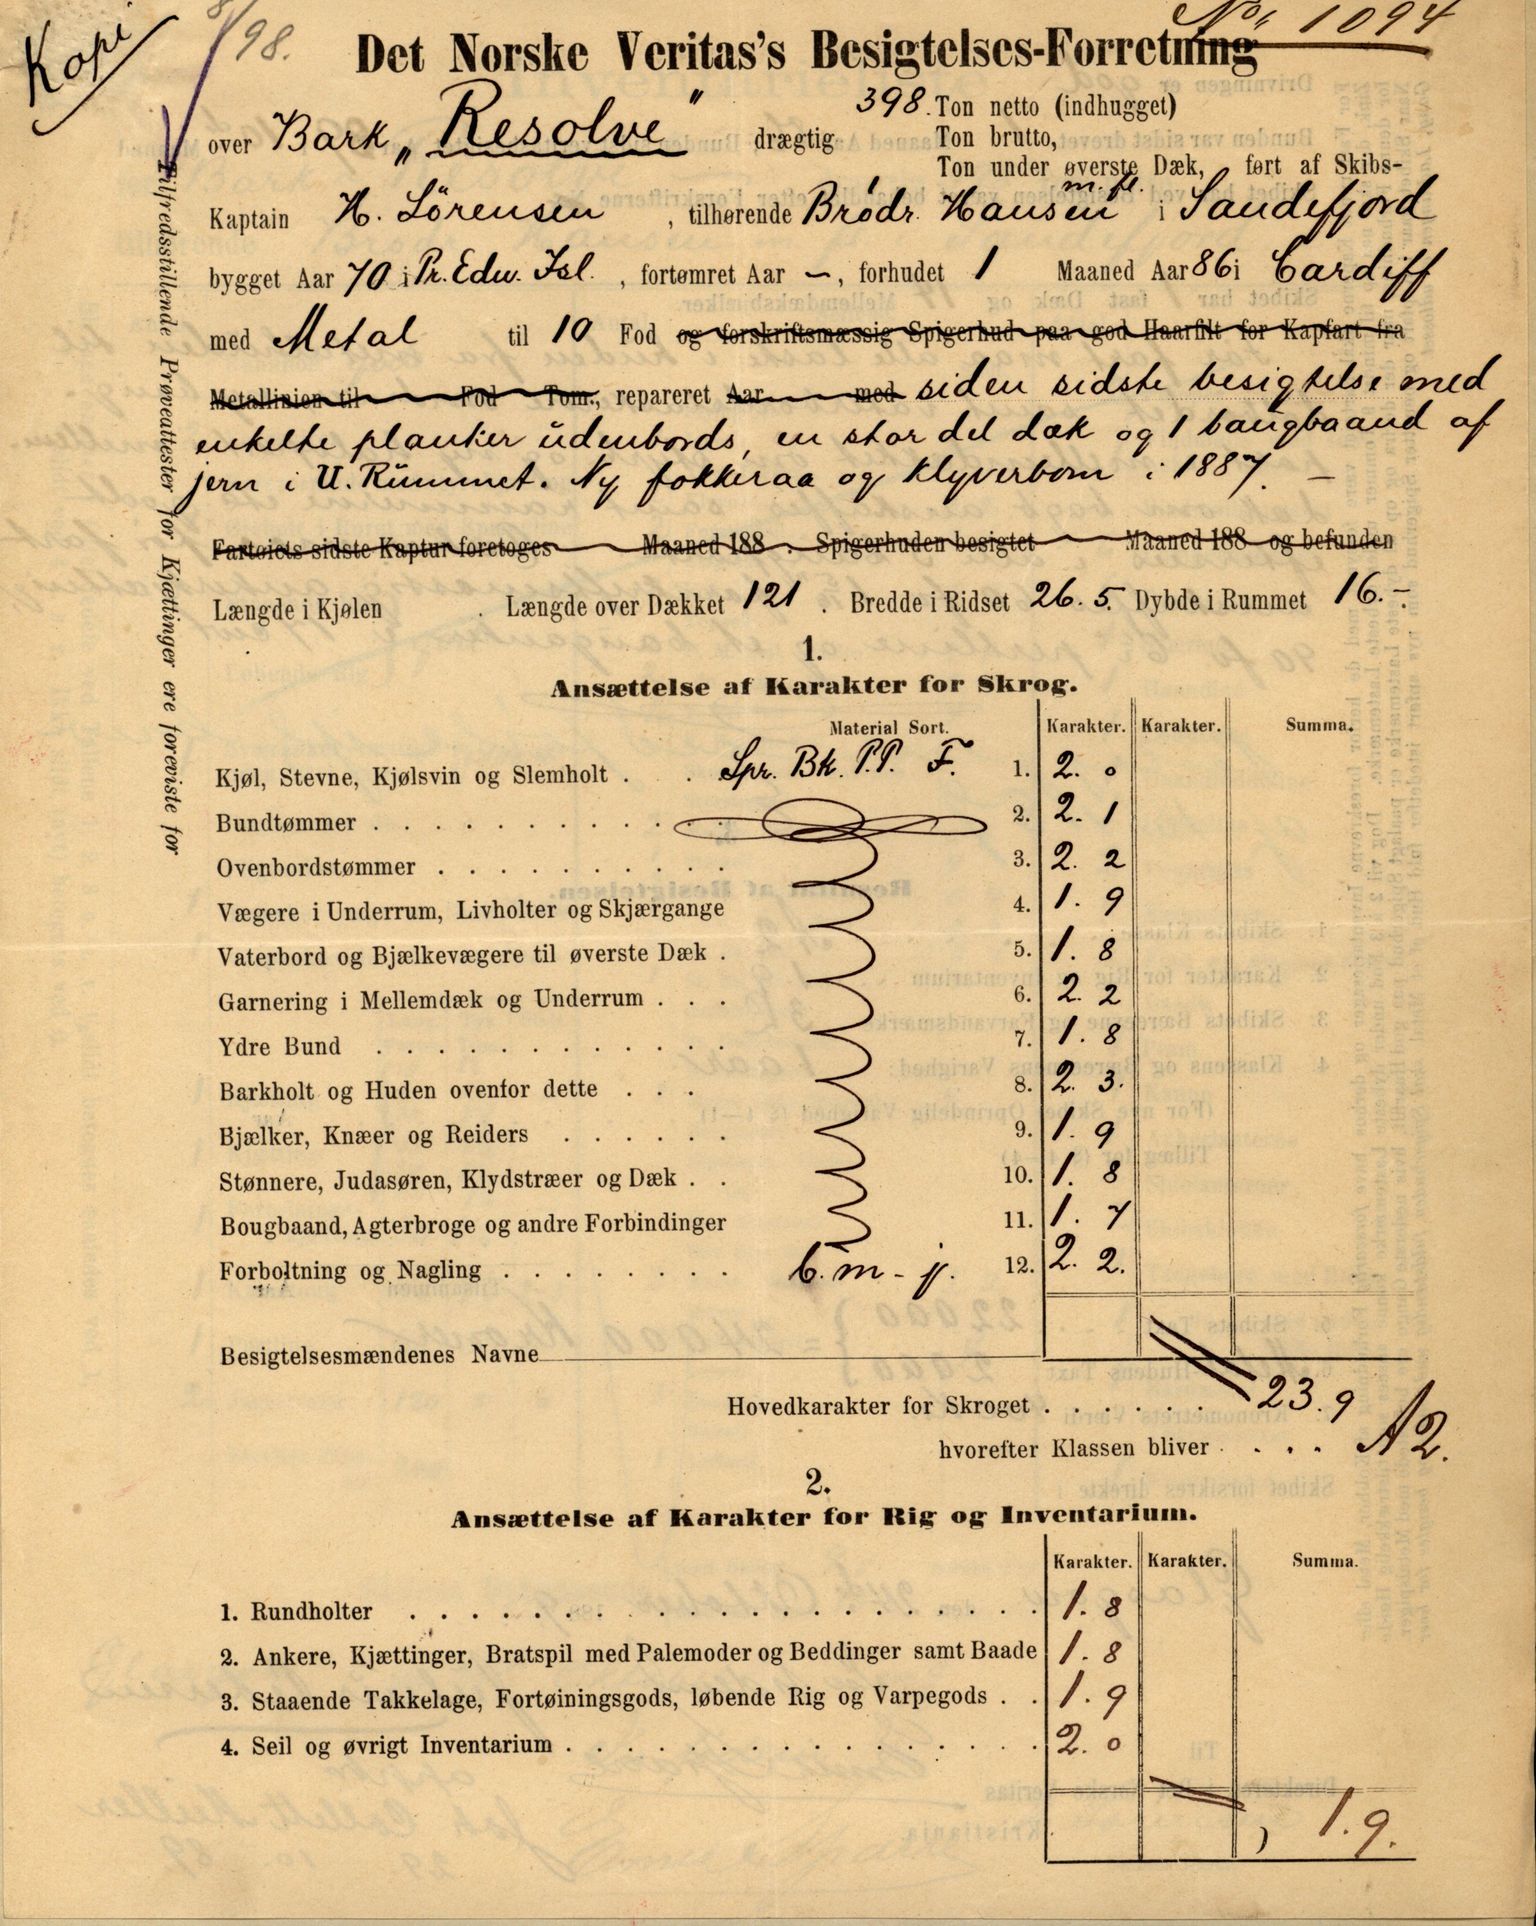 Kopi
8/98.
No 1094
Det Norske Veritas's Besigtelses-Forretning
over Bark „Resolve" drægtig 398. Ton netto (indhugget)
Ton brutto,
Ton under øverste Dæk, ført af Skibs-
Kaptain H. Sörensen, tilhørende Brødr. Hansen m. fl. i Sandefjord
bygget Aar 70 i Pr. Edw. Isl., fortømret Aar —, forhudet 1 Maaned Aar 86 i Cardiff
med Metal til 10 Fod og forskriftsmæssig Spigerhud paa god Haarfilt for Kapfart fra
Metallinien til Fod Tom., repareret Aar med siden sidste besigtelse med
enkelte planker udenbords, en stor del dæk og 1 baugbaand af
jern i U. Rummet. Ny fokkeraa og klyverbom i 1887. —
Fartøiets sidste Kaptur foretoges Maaned 188 . Spigerhuden besigtet Maaned 188 og befunden
Længde i Kjølen . Længde over Dækket 121 . Bredde i Ridset 26. 5. Dybde i Rummet 16.-.
Tilfredsstillende Prøveattester for Kjættinger ere foreviste for
1.
Ansættelse af Karakter for Skrog.
Material Sort. Karakter. Karakter. Summa.
Kjøl, Stevne, Kjølsvin og Slemholt . . Spr. Bk. P.P. F. 1. 2. 0
Bundtømmer . . . . . . . . . . . . 2. 2. 1
Ovenbordstømmer . . . . . . . . . . 3. 2. 2
Vægere i Underrum, Livholter og Skjærgange 4. 1. 9
Vaterbord og Bjælkevægere til øverste Dæk . 5. 1. 8
Garnering i Mellemdæk og Underrum . . . 6. 2. 2
Ydre Bund . . . . . . . . . . . . 7. 1. 8
Barkholt og Huden ovenfor dette . . . 8. 2. 3.
Bjælker, Knæer og Reiders . . . . . . 9. 1. 9
Stønnere, Judasøren, Klydstræer og Dæk . . 10. 1. 8
Bougbaand, Agterbroge og andre Forbindinger 11. 1. 7
Forboltning og Nagling . . . . . . . . G. m - j. 12. 2. 2.
Besigtelsesmændenes Navne
Hovedkarakter for Skroget . . . . . . 23. 9
hvorefter Klassen bliver . . . . A 2.
2.
Ansættelse af Karakter for Rig og Inventarium.
Karakter. Karakter. Summa.
1. Rundholter . . . . . . . . . . . . . . . . . . . . 1. 8
2. Ankere, Kjættinger, Bratspil med Palemoder og Beddinger samt Baade 1. 8
3. Staaende Takkelage, Fortøiningsgods, løbende Rig og Varpegods . . 1. 9
4. Seil og øvrigt Inventarium . . . . . . . . . . . . . . . . 2. 0
1. 9.